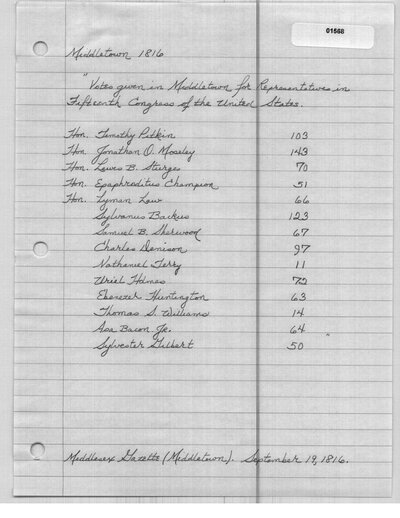 01568
Middletown 1816
"Votes given in Middletown for Representatives in
Fifteenth Congress of the United States.
Hon. Timothy Pitkin 103
Hon Jonathan O. Moseley 143
Hon. Lewis B. Sturges 70
Hon. Epaphroditus Champion 51
Hon. Lyman Law 66
Sylvanus Backus 123
Samuel B. Sherwood 67
Charles Denison 97
Nathaniel Terry 11
Uriel Holmes 72
Ebenezer Huntington 63
Thomas S. Williams 14
Asa Bacon Jr. 64 "
Sylvester Gilbert 50
Middlesex Gazette (Middletown). September 19, 1816.